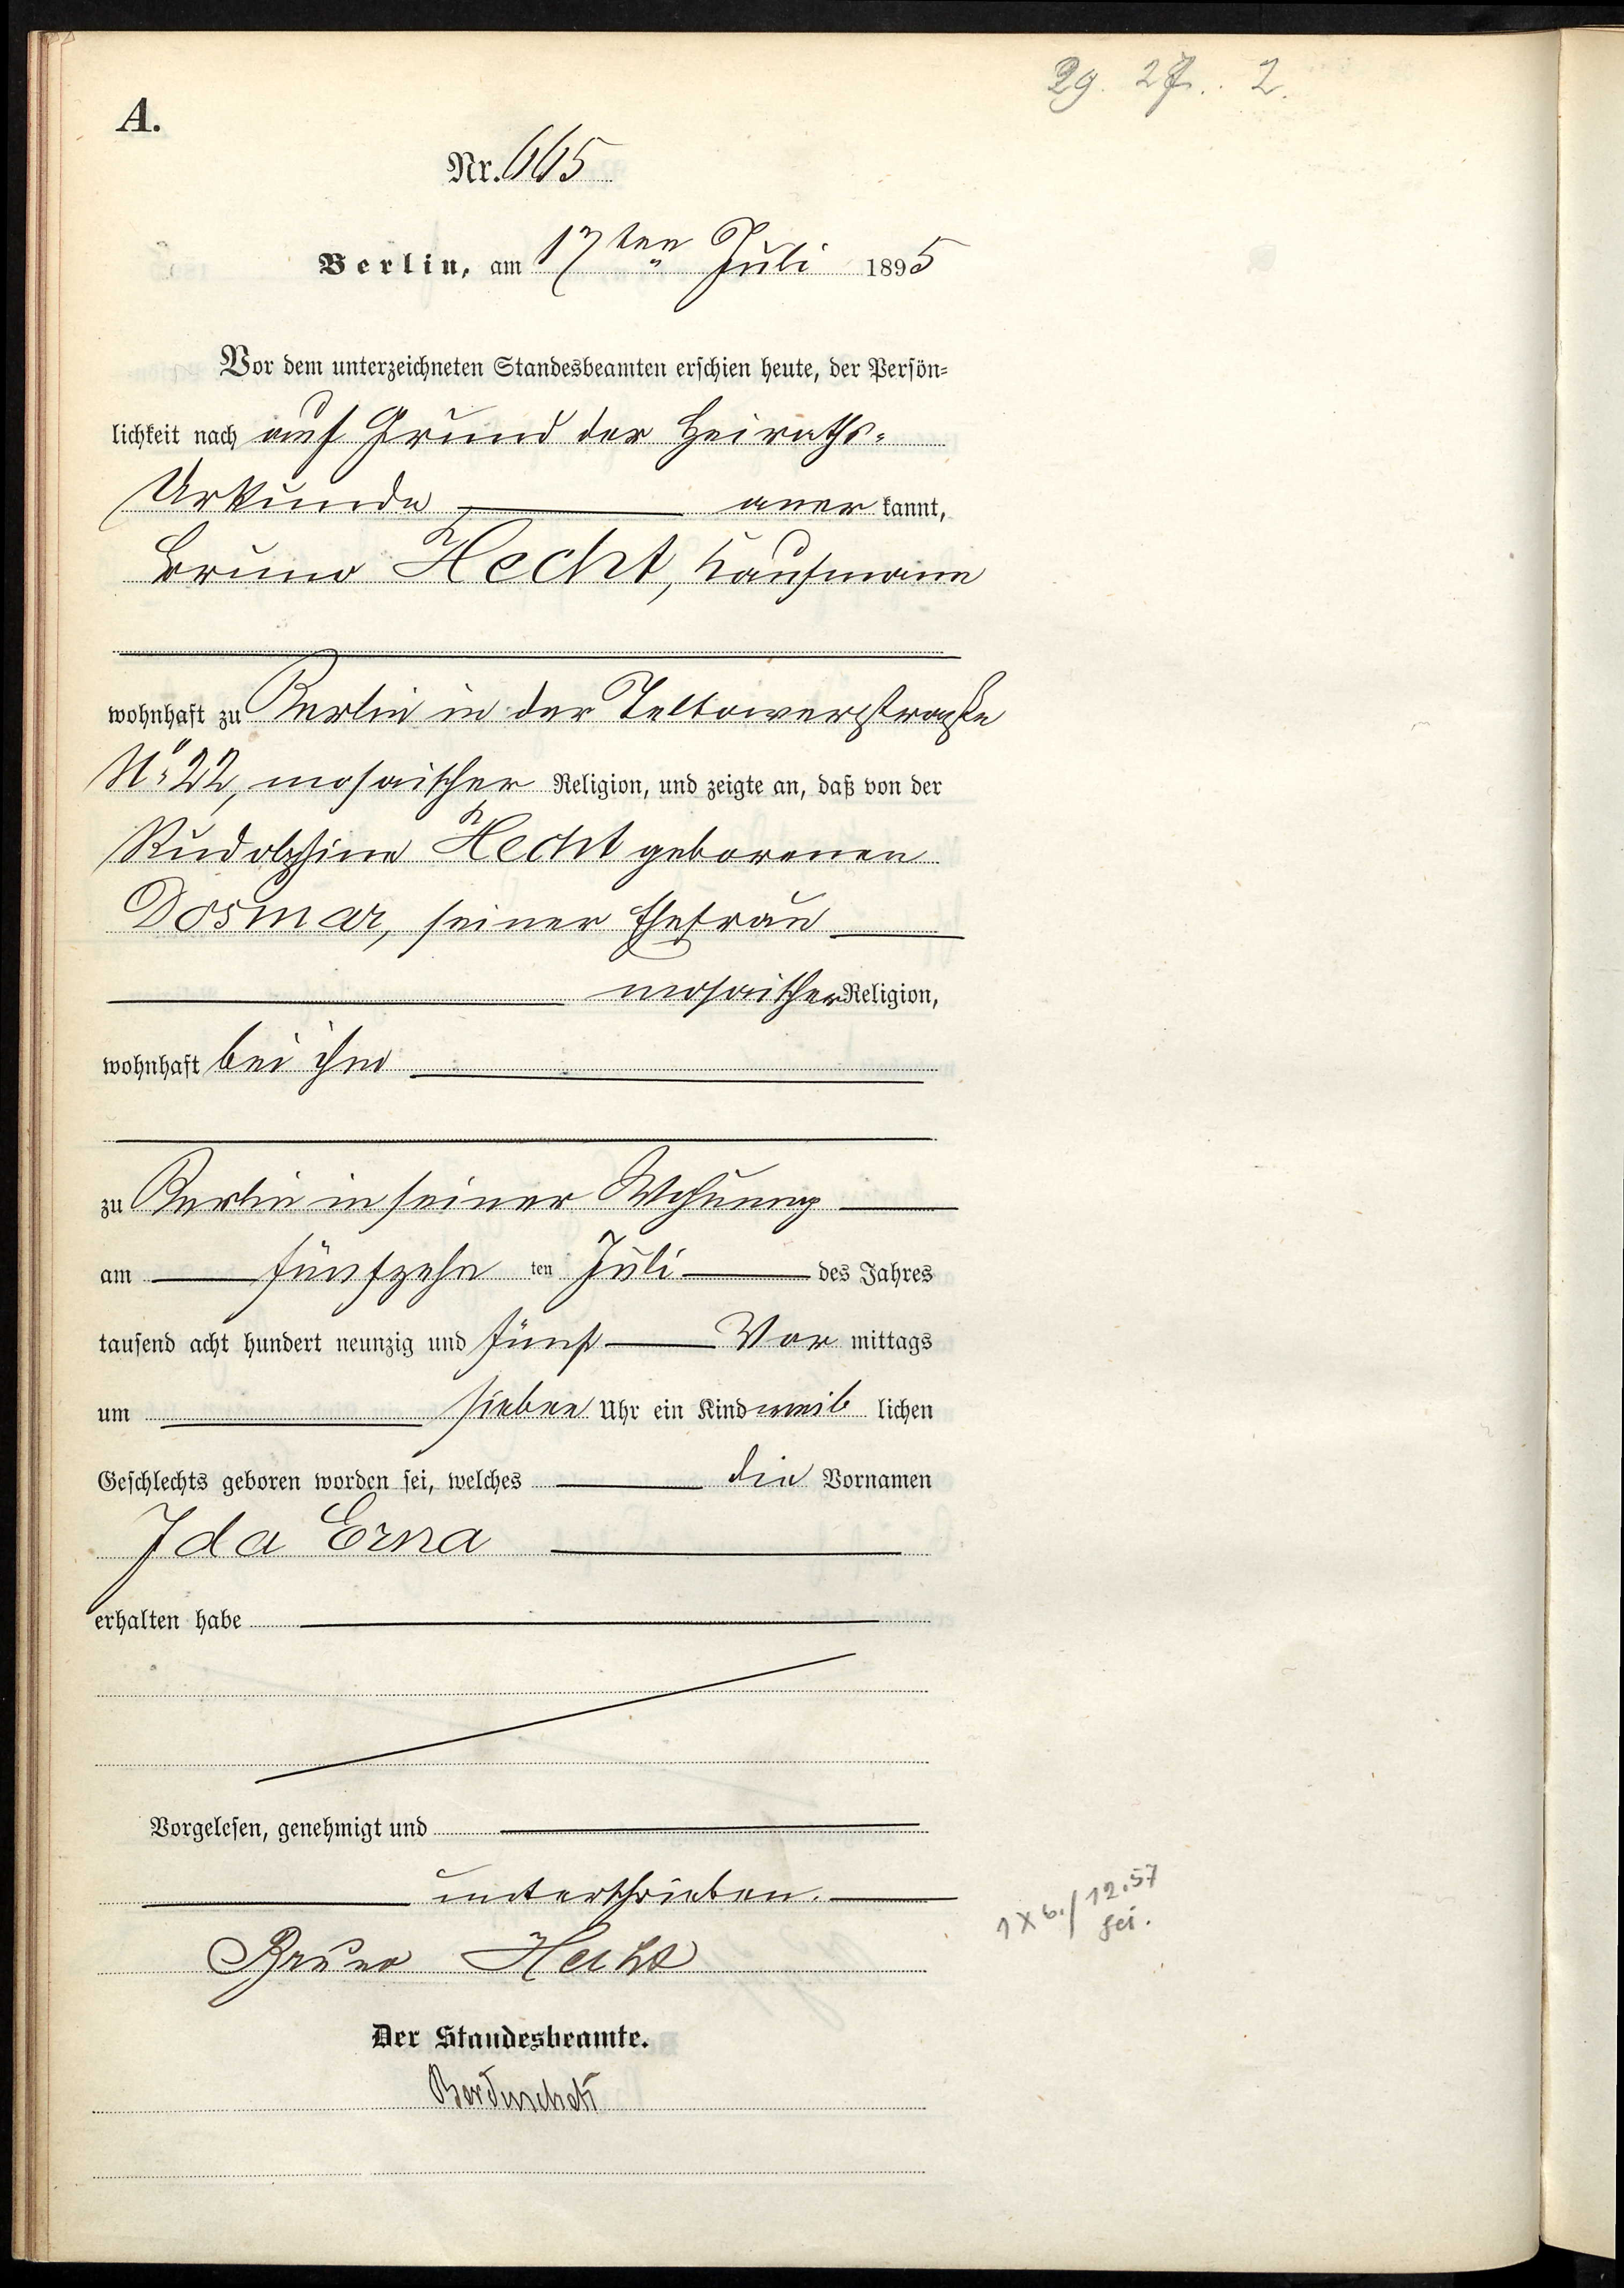 29. 27. 2.
A.
Nr. 665
Berlin, am 17ten Juli 1895
Vor dem unterzeichneten Standesbeamten erschien heute, der Persön-
lichkeit nach auf Grund der Heiraths-
Urkunde anerkannt,
Bruno Hecht, Kaufmann
wohnhaft zu Berlin in der Teltowerstraße
No 22, mosaischer Religion, und zeigte an, daß von der
Rudolphine Hecht geborenen
Dosmar, seiner Ehefrau
mosaischer Religion,
wohnhaft bei ihm
zu Berlin in seiner Wohnung
am fünfzehn ten Juli des Jahres
tausend acht hundert neunzig und fünf Vormittags
um sieben Uhr ein Kind weiblichen
Geschlechts geboren worden sei, welches die Vornamen
Ida Erna
erhalten habe
Vorgelesen, genehmigt und
unterschrieben.
1 x b./12.57
Bruno Hecht
Der Standesbeamte.